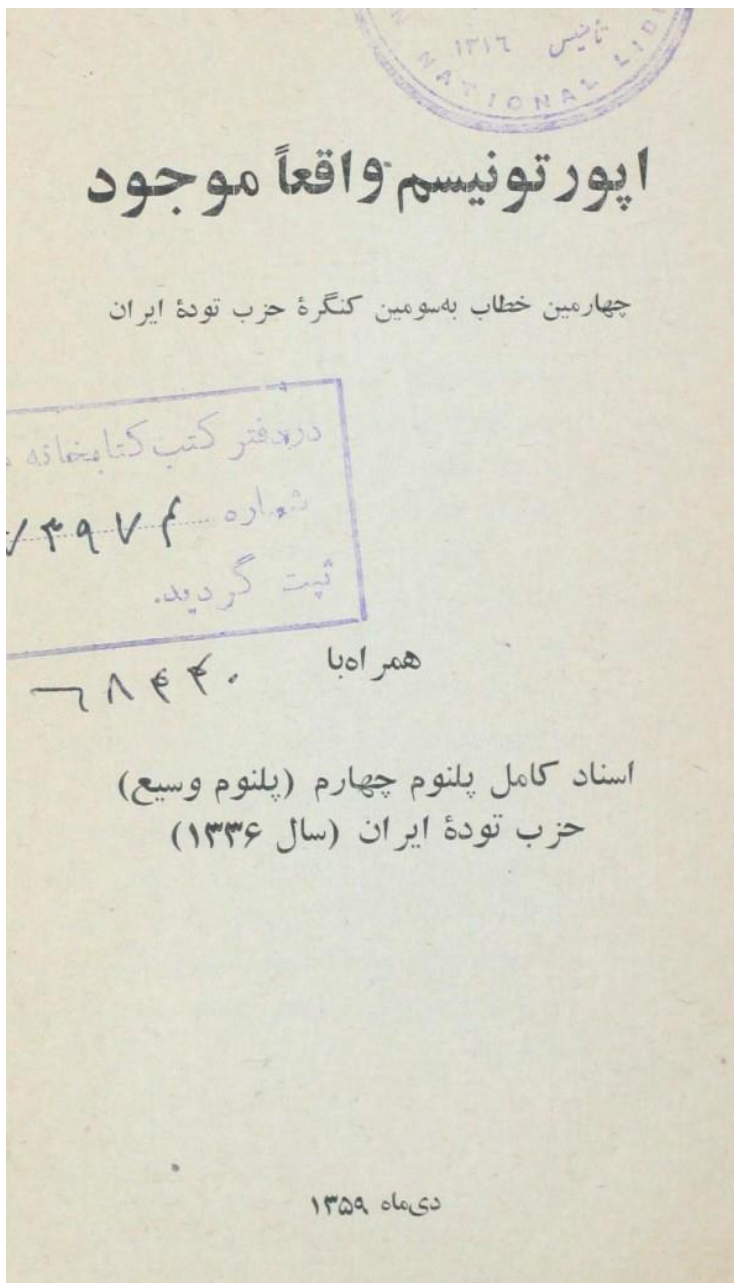 تأسیس
۱۳۱۶
NATIONAL
اپورتونیسم واقعاً موجود
چهارمین خطاب به‌سومین کنگرهٔ حزب تودهٔ ایران
در دفتر کتب کتابخانه
شماره
ثبت گردید.
همراه‌با
۶۸۴۴۰
اسناد کامل پلنوم چهارم (پلنوم وسیع)
حزب تودهٔ ایران (سال ۱۳۳۶)
دی‌ماه ۱۳۵۹